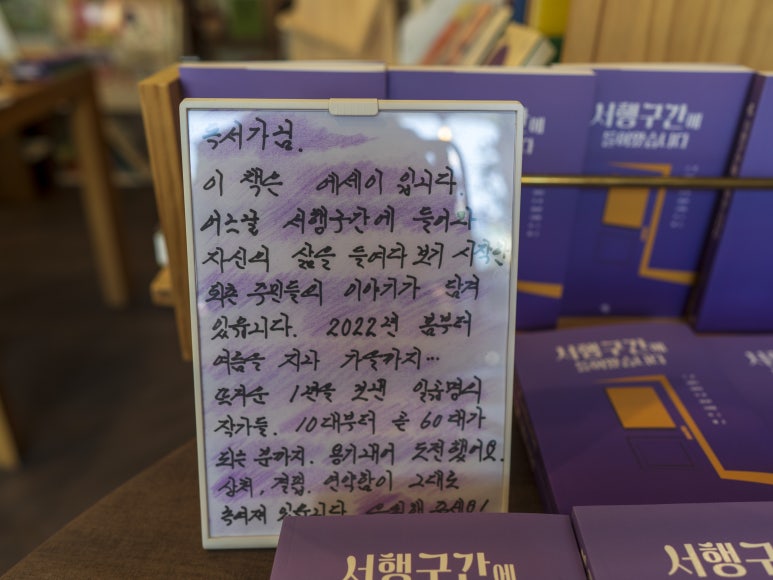 독서가님.
이 책은 에세이 입니다.
어느날 서행구간에 들어와
자신의 삶을 들여다 보기 시작한
퇴촌 주민들의 이야기가 담겨
있습니다. 2022년 봄부터
여름을 지나 가을까지...
뜨거운 1년을 보낸 일곱명의
작가들. 10대부터 곧 60대가
되는 분까지. 용기내어 도전했어요.
상처, 결핍, 연약함이 그대로
녹여져 있습니다.
서행구간에
들어왔습니다
서행구간에
들어왔습니다
서행구간에
서행구간에